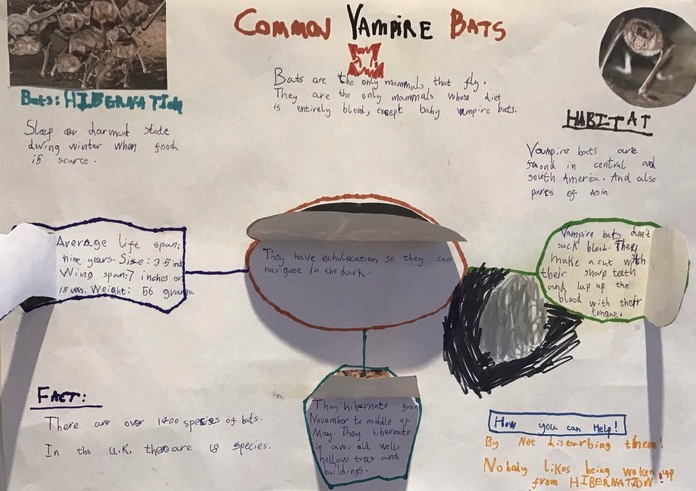 Common Vampire Bats
Bats are the only mammals that fly.
They are the only mammals whose diet
is entirely blood, except baby vampire bats.
Bats: HIBERNATION
Sleep or dormant state
during winter when food
is scarce.
HABITAT
Vampire bats are
found in central and
south America. And also
parts of Asia.
Average life span:
nine years. Size: 3.5 inch
Wing span: 7 inches or
18 cms. Weight: 56 grams
They have echolocation so they can
navigate in the dark.
Vampire bats don't
suck blood. They
make a cut with
their sharp teeth
and lap up the
blood with their
tongue.
They hibernate from
November to middle of
May. They hibernate
in old wells
hollow trees and
buildings.
FACT:
There are over 1400 species of bats.
In the U.K. there are 18 species.
How you can Help!
By Not disturbing them!
Nobody likes being woken up
from HIBERNATION!